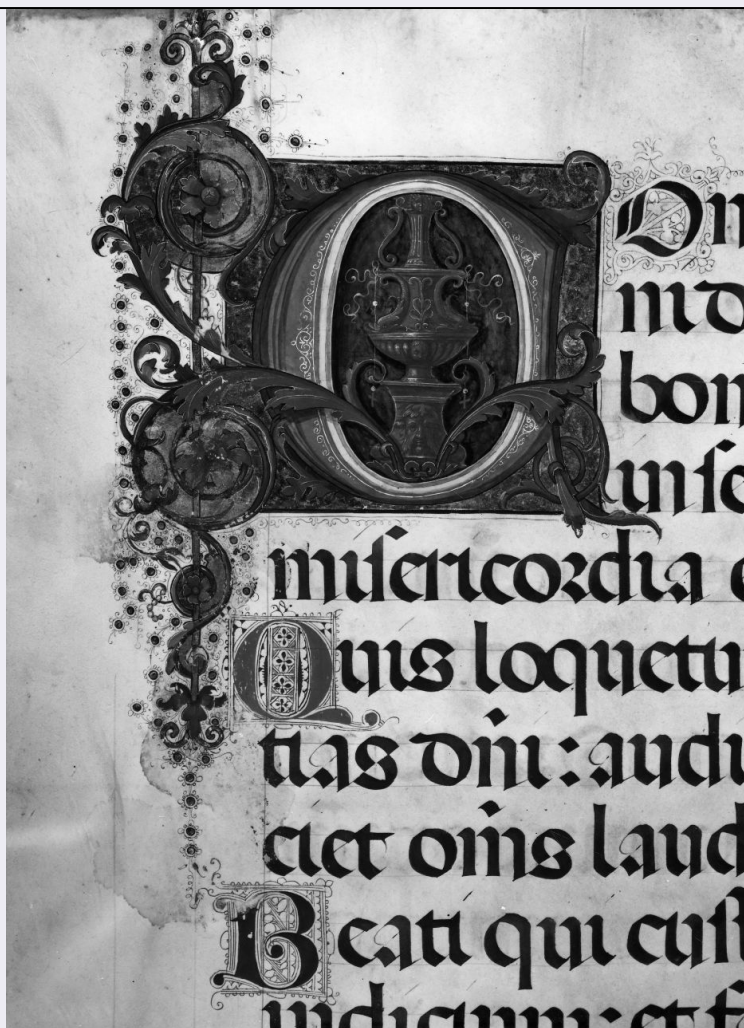 COn
ni do
bon
in ſe
miſericordia e
Quis loquetu
tias dñi: audi
ciet om̄s laud
Beati qui cuſt
iudicium: et f